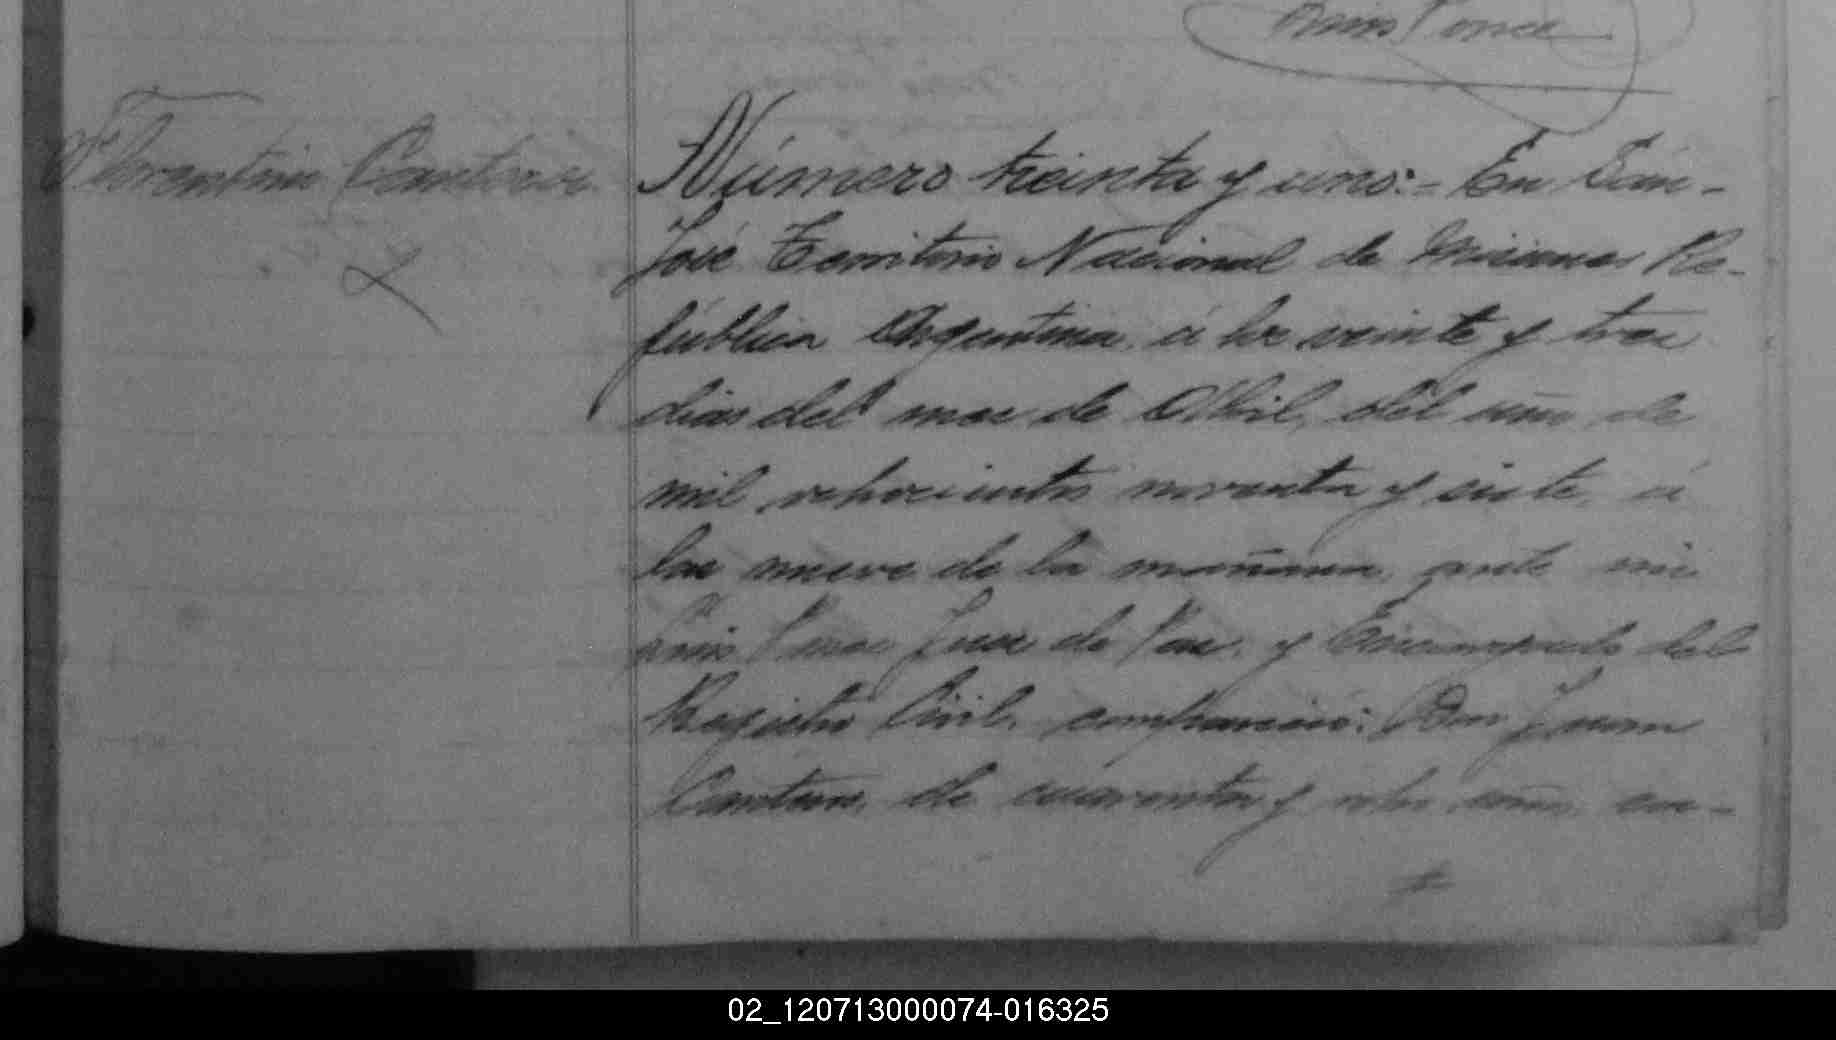 Luis Ponce
Florentin Cantero
Número treinta y uno:- En San-
José Territorio Nacional de Misiones Re-
pública Argentina, á los veinte y tres
dias del mes de Abril, del año de
mil ochocientos noventa y siete, á
las nueve de la mañana, ante mi
Luis Ponce Juez de Paz y Encargado del
Registro Civil, compareció: Don Juan
Cantero, de cuarenta y ocho años, ca-
02_120713000074-016325